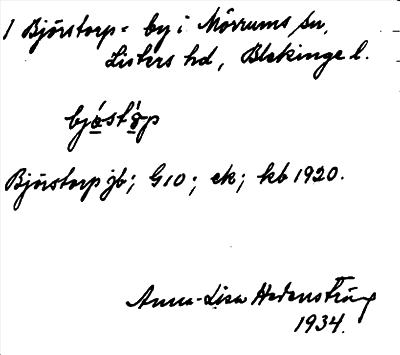 1 Bjärstorp = by i Mörrums sn,
Listers hd, Blekinge l.
bjǻstǿp
Bjärstorp jb; G10; ek; kb 1920.
Anna-Lisa Hedenström
1934.